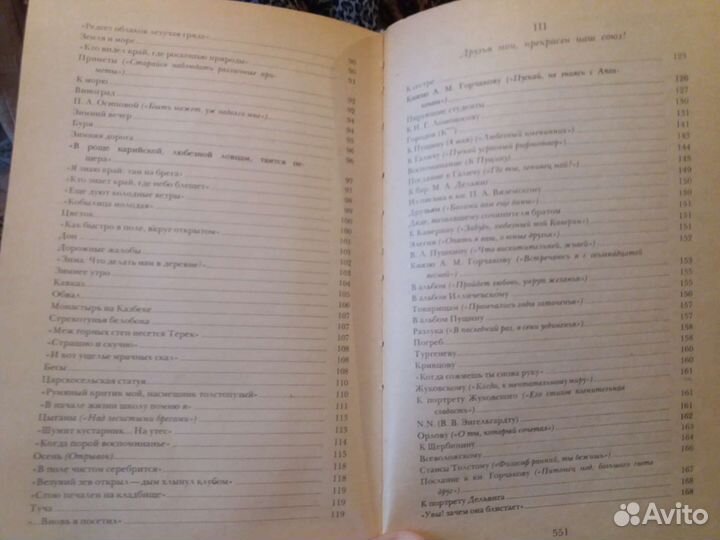 «Редеет облаков летучая гряда»
Земля и море 90
«Кто видел край, где роскошью природы» 90
Приметы («Старайся наблюдать различные при-
меты») 91
К морю
Виноград 92
П. А. Осиповой («Быть может, уж недолго мне») 92
Зимний вечер 94
Буря 94
Зимняя дорога 94
«В роще карийской, любезной ловцам, таится пе-
щера» 96
«Я знаю край: там на брега» 97
«Кто знает край, где небо блещет»
«Еще дуют холодные ветры»
«Кобылица молодая»
Цветок
«Как быстро в поле, вкруг открытом» 101
Дон 101
Дорожные жалобы 102
«Зима. Что делать нам в деревне?» 103
Зимнее утро 104
Кавказ
Обвал 106
Монастырь на Казбеке 107
Стрекотунья белобока 107
«Меж горных стен несется Терек» 107
«Страшно и скучно» 108
«И вот ущелье мрачных скал» 108
Бесы 108
Царскосельская статуя 110
«Румяный критик мой, насмешник толстопузый» 110
«В начале жизни школу помню я» 111
Цыганы («Над лесистыми брегами») 113
«Шумит кустарник... На утес» 113
«Когда порой воспоминанье» 114
Осень (Отрывок) 115
«В поле чистом серебрится» 118
«Везувий зев открыл — дым хлынул клубом» 118
«Стою печален на кладбище» 118
Туча 119
«...Вновь я посетил» 119
III
Друзья мои, прекрасен наш союз!
К сестре 123
Князю А. М. Горчакову («Пускай, не знаясь с Апол-
лоном») 126
Пирующие студенты 127
К Н. Г. Ломоносову 130
Городок (К***) 131
К Пушкину (4 мая) («Любезный именинник») 143
К Галичу («Пускай угрюмый рифмотвор») 144
Воспоминание (К Пущину) 145
Послание к Галичу («Где ты, ленивец мой?») 146
К бар. М. А. Дельвиг 149
Из письма к кн. П. А. Вяземскому 150
Друзьям («Богами вам еще даны») 151
Дяде, назвавшему сочинителя братом 151
К Каверину («Забудь, любезный мой Каверин») 151
Элегия («Опять я ваш, о юные друзья») 151
В. Л. Пушкину («Что восхитительней, живей») 152
Князю А. М. Горчакову («Встречаюсь я с осьмнадцатой
весной») 153
В альбом («Пройдет любовь, умрут желанья») 155
В альбом Илличевскому 155
Товарищам («Промчались годы заточенья») 156
В альбом Пущину 157
Разлука («В последний раз, в сени уединенья») 158
Погреб 158
Тургеневу 159
Кривцову 160
«Когда сожмешь ты снова руку» 160
Жуковскому («Когда, к мечтательному миру») 161
К портрету Жуковского («Его стихов пленительная
сладость») 161
N. N. (В. В. Энгельгардту) 161
Орлову («О ты, который сочетал») 162
К Щербинину
Всеволожскому
Стансы Толстому («Философ ранний, ты бежишь»)
Послание к кн. Горчакову («Питомец мод, большого света
друг») 167
К портрету Дельвига 168
«Увы! зачем она блистает» 168
551
Avito